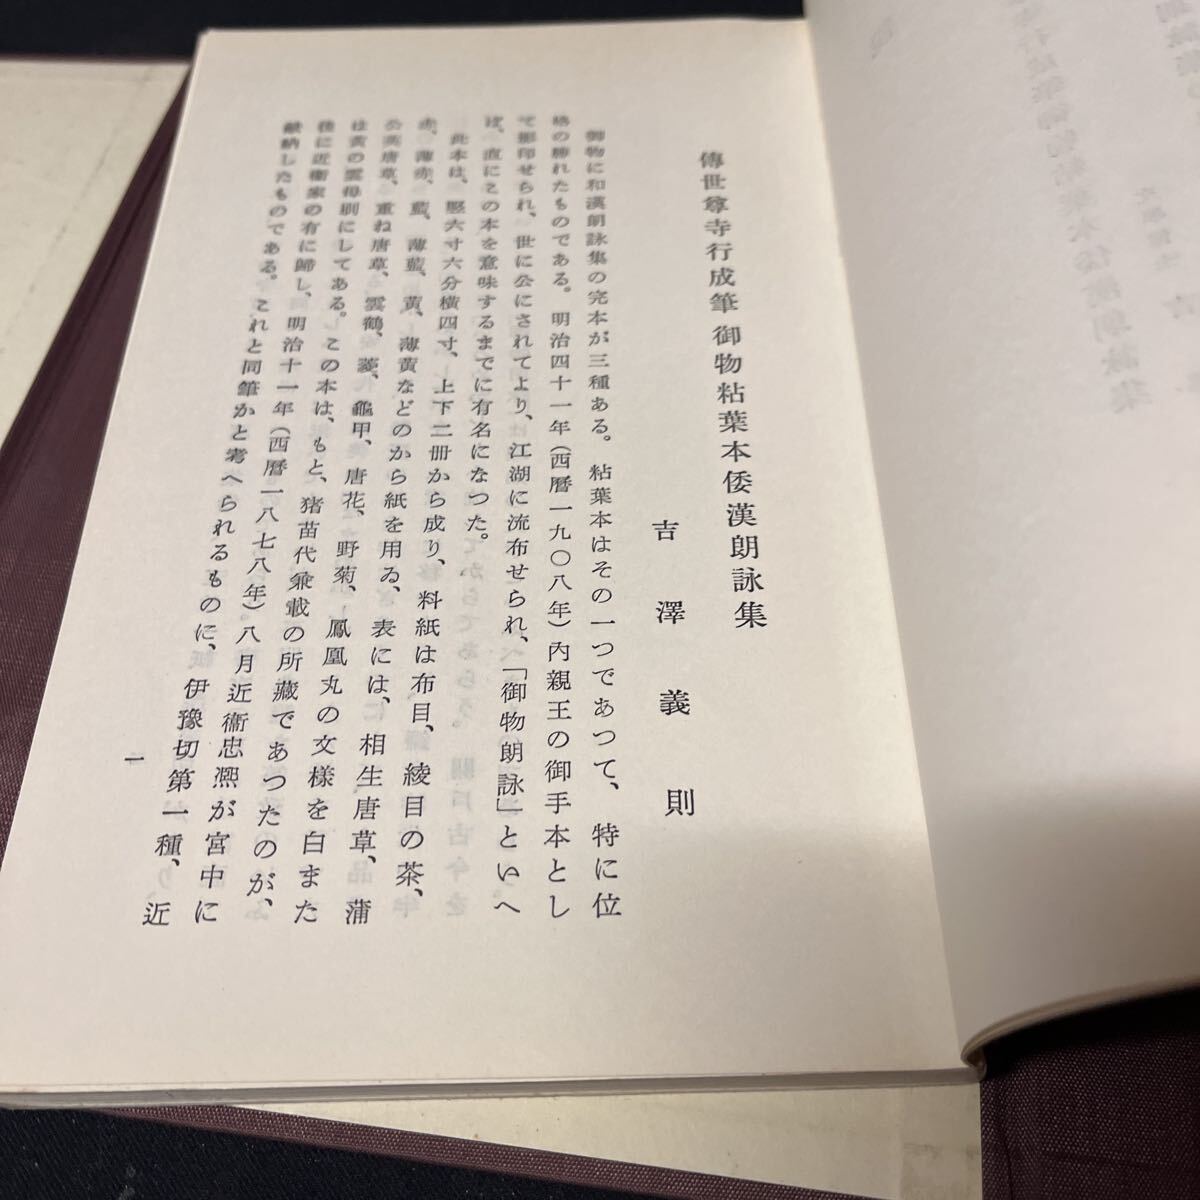 傳世尊寺行成筆 御物粘葉本倭漢朗詠集
吉澤義則
御物に和漢朗詠集の完本が三種ある。粘葉本はその一つであつて、特に位
格の勝れたものである。明治四十一年(西暦一九〇八年)內親王の御手本とし
て影印せられ、世に公にされてより、江湖に流布せられ、「御物朗詠」といへ
ば、直にこの本を意味するまでに有名になつた。
此本は、竪六寸六分橫四寸、上下二册から成り、料紙は布目、綾目の茶、
赤、薄赤、藍、薄藍、黃、薄黃などのから紙を用ゐ、表には、相生唐草、蒲
公英唐草、重ね唐草、雲鶴、菱、龜甲、唐花、野菊、鳳凰丸の文樣を白また
は黃の雲母刷にしてある。この本は、もと、猪苗代兼載の所藏であつたのが、
後に近衞家の有に歸し、明治十一年(西暦一八七八年)八月近衞忠凞が宮中に
獻納したものである。これと同筆かと考へられるものに、伊豫切第一種、近
一